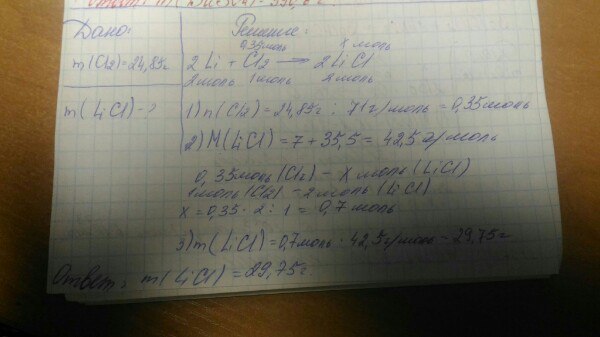 Ответ: m(
Дано:
Решение:
0,35моль x моль
m(Cl2)=24,85г
2Li + Cl2 → 2LiCl
2моль 1моль 2моль
m(LiCl)-?
1) n(Cl2)=24,85г : 71г/моль = 0,35моль
2) M(LiCl)=7+35,5=42,5г/моль
0,35моль(Cl2) - x моль (LiCl)
1моль(Cl2) - 2моль(LiCl)
x = 0,35 · 2 : 1 = 0,7 моль
3) m(LiCl)=0,7моль · 42,5г/моль = 29,75г
Ответ: m(LiCl)=29,75г.